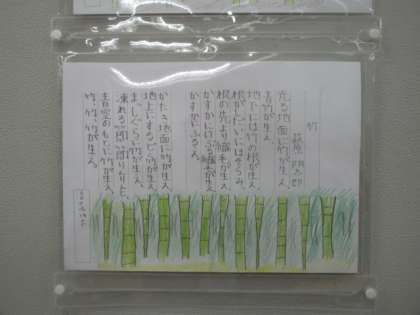 竹
萩原 朔太郎
光る地面に竹が生え、
青竹が生え、
地下には竹の根が生え、
根がしだいにほそらみ、
根の先より繊毛が生え、
かすかにけぶる繊毛が生え、
かすかにふるえ。
かたき地面に竹が生え、
地上にするどく竹が生え、
まっしぐらに竹が生え、
凍れる節節りんりんと、
青空のもとに竹が生え、
竹、竹、竹が生え。